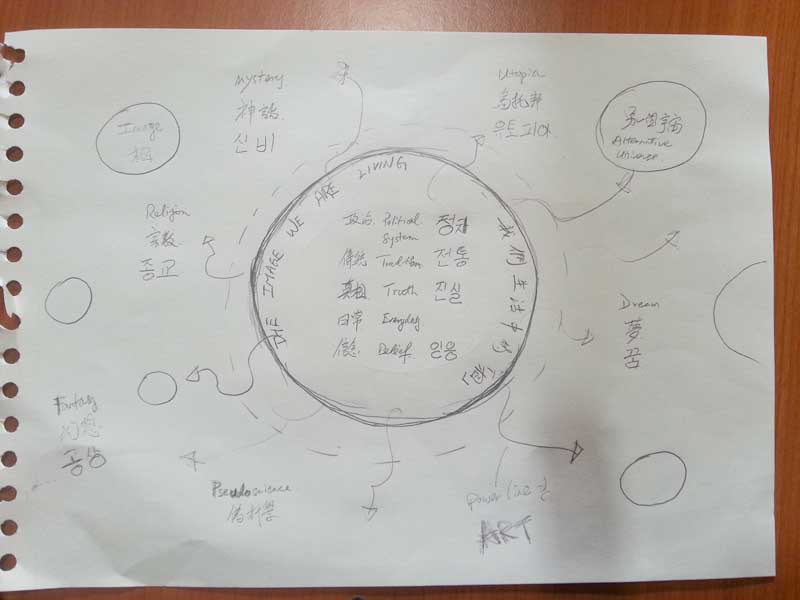 Mystery
神話
신비
Utopia
烏托邦
유토피아
Image
相
另一個宇宙
Alternative
Universe
THE IMAGE WE ARE LIVING
我們生活中的
Religion
宗教
종교
政治 Political System 정치
傳統 Tradition 전통
真相 Truth 진실
日常 Everyday
信念 Belief 믿음
Dream
夢
꿈
Fantasy
幻想
공상
Pseudoscience
偽科學
Power
ART